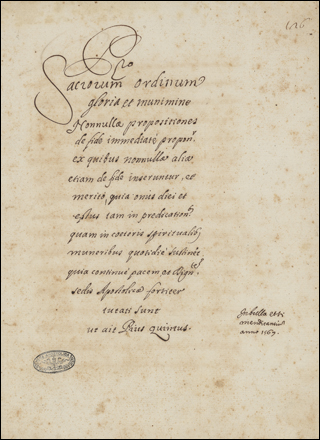 Pro
Sacrorum ordinum
gloria et munimine
Nonnullæ propositiones
de fide immediatè propon.
ex quibus nonnullæ aliæ
etiam de fide inferuntur, et
meritò, quia onus diei et
estus tam in predication.
quam in cæteris spiritualib.
muneribus quotidiè
quia continuè pacem et
sedis Apostolicæ fortiter
tutati sunt
ut ait Pius Quintus.
in bulla
mendicantiũ
anno 1567.